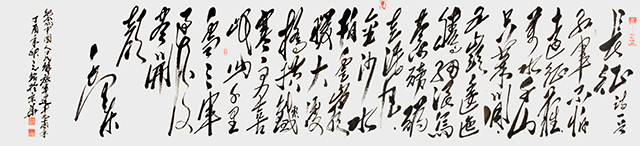 长征 诗一首
红军不怕
远征难
万水千山
只等闲
五岭逶迤
腾细浪乌
蒙磅礴
走泥丸
金沙水
拍云崖
暖大渡
桥横铁
索寒更喜
岷山千里
雪三军
过后
尽开
颜
毛泽东